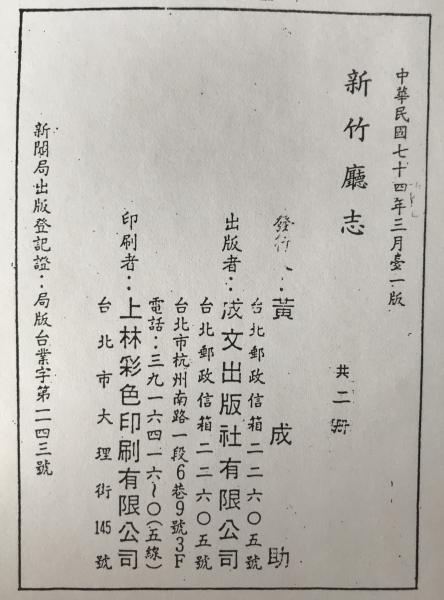 中華民國七十四年三月臺一版
新竹廳志
共二冊
發行人：黃成助
台北郵政信箱二二六〇五號
出版者：成文出版社有限公司
台北郵政信箱二二六〇五號
台北市杭州南路一段6巷9號3F
電話：三九一六四一六～〇(五線)
印刷者：上林彩色印刷有限公司
台北市大理街145號
新聞局出版登記證：局版台業字第一一四三號